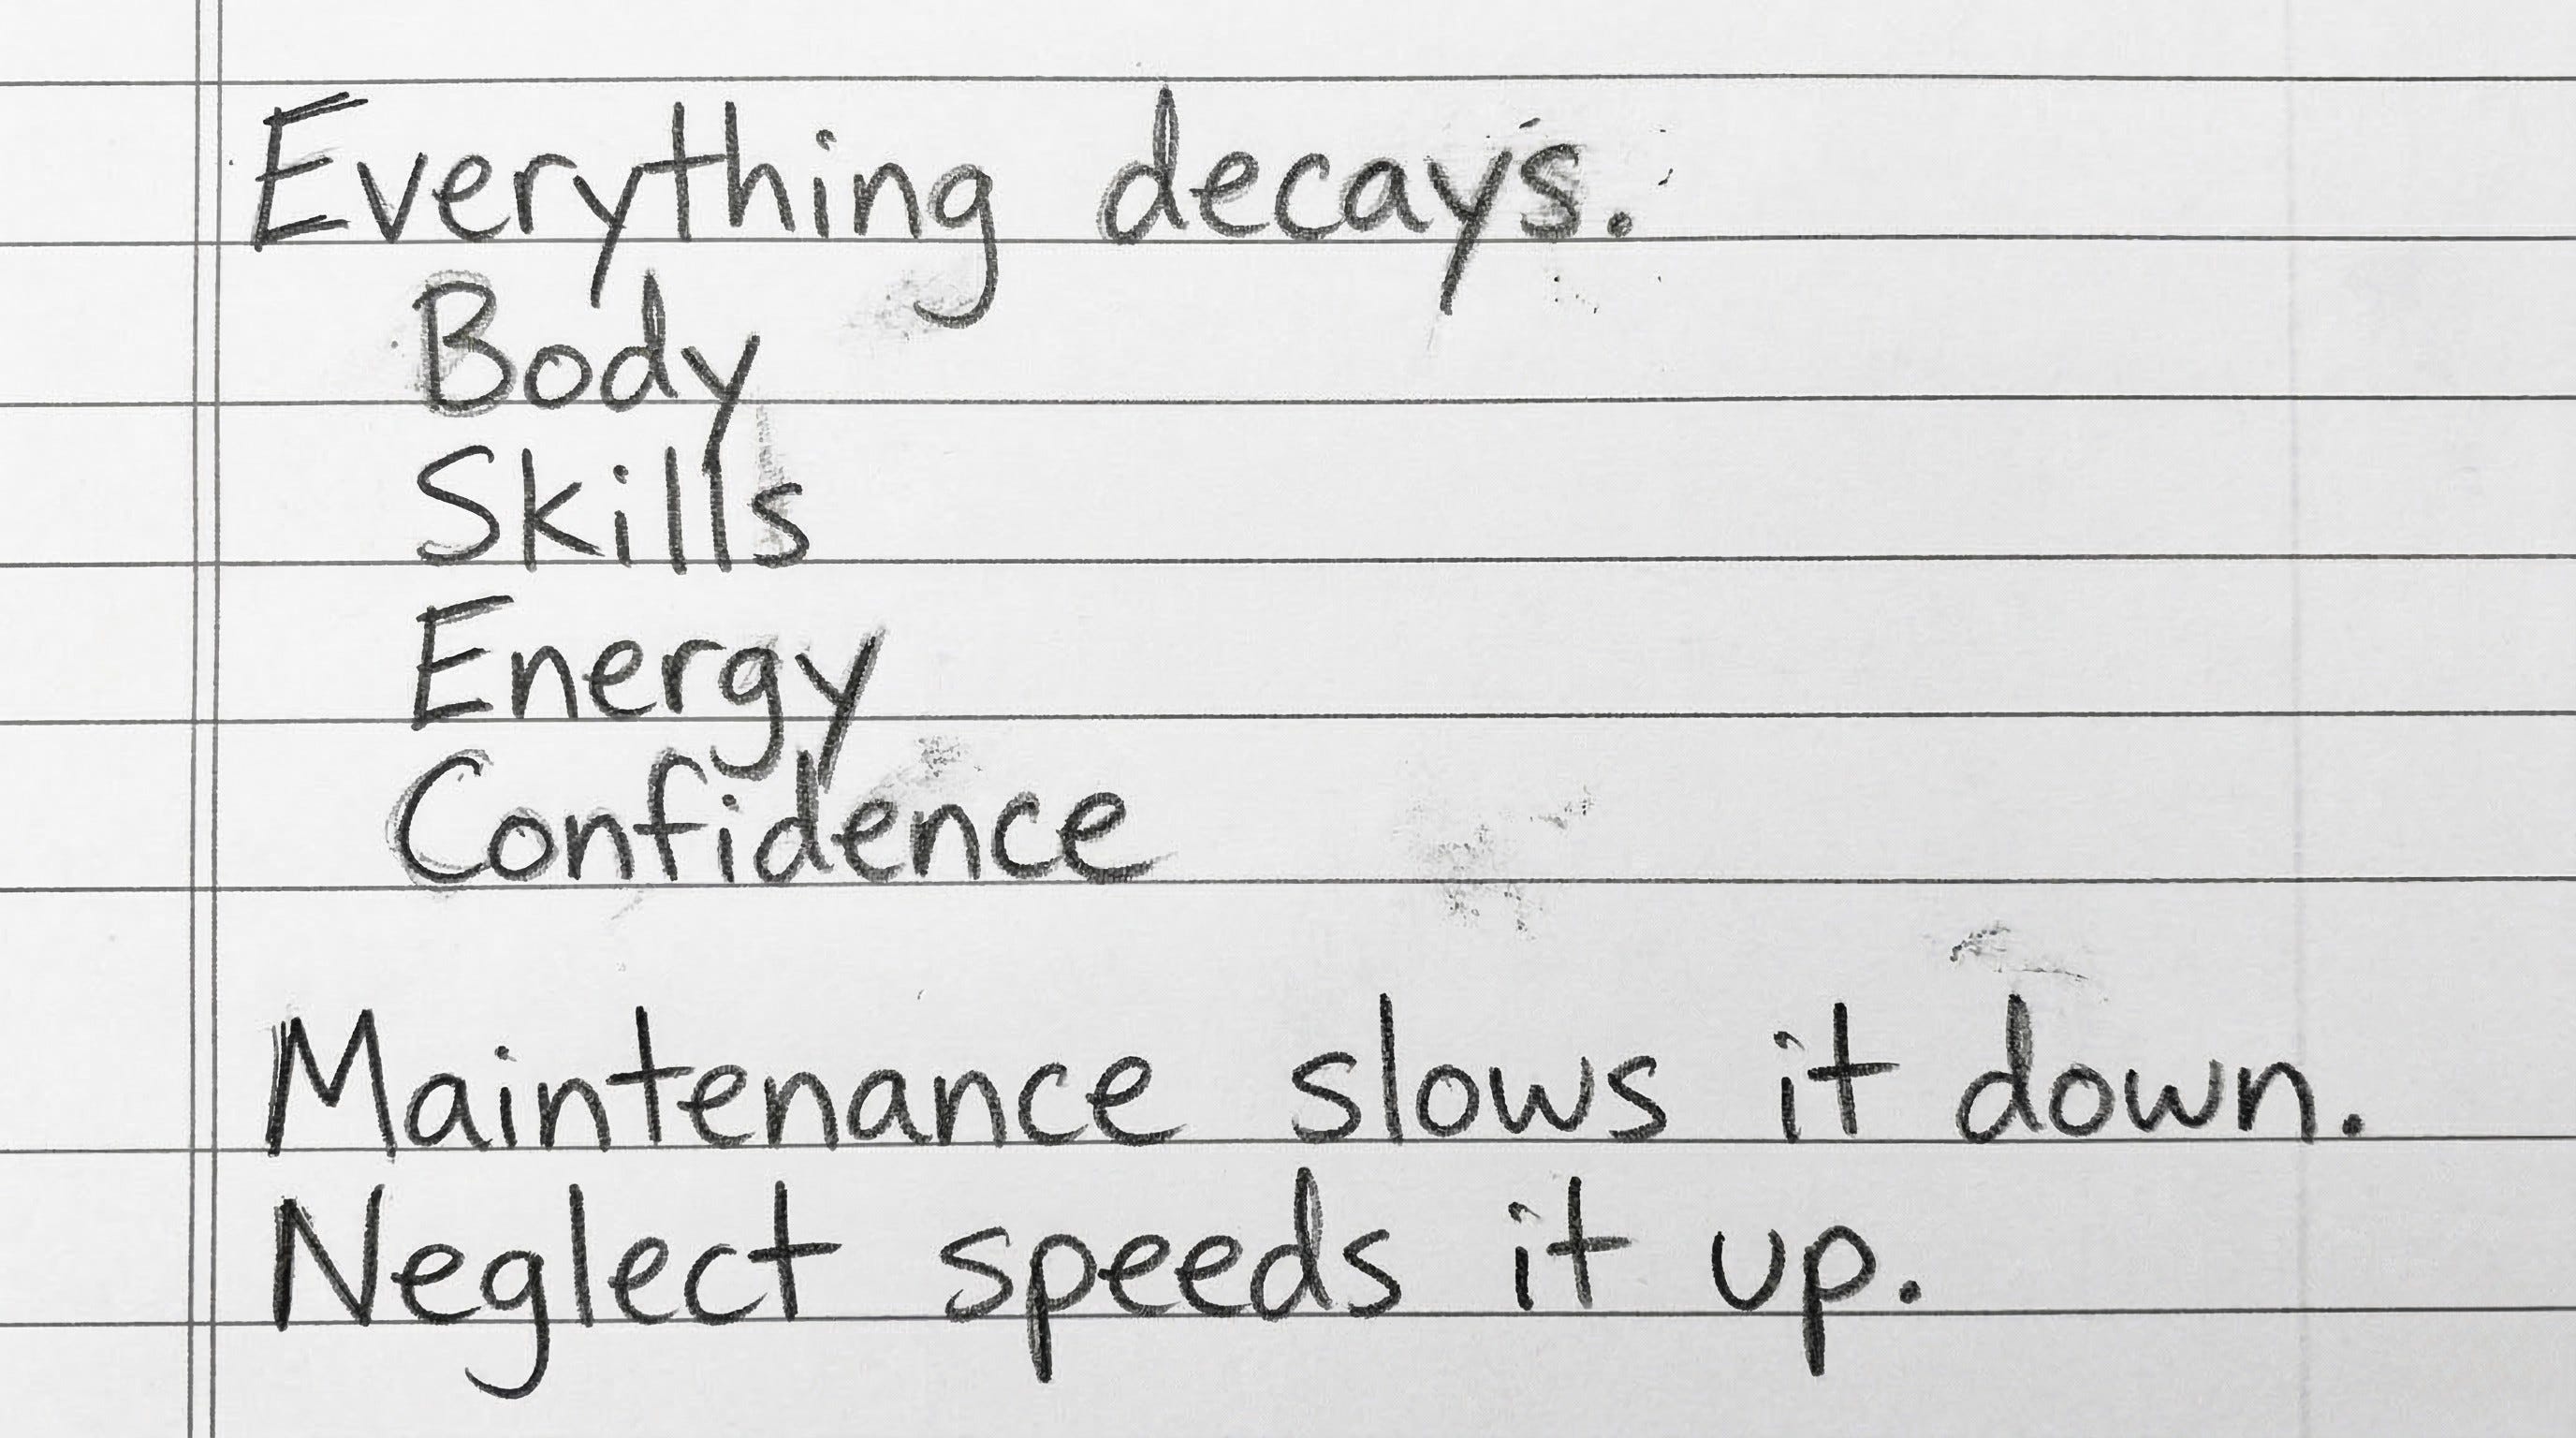 Everything decays.
Body
Skills
Energy
Confidence
Maintenance slows it down.
Neglect speeds it up.